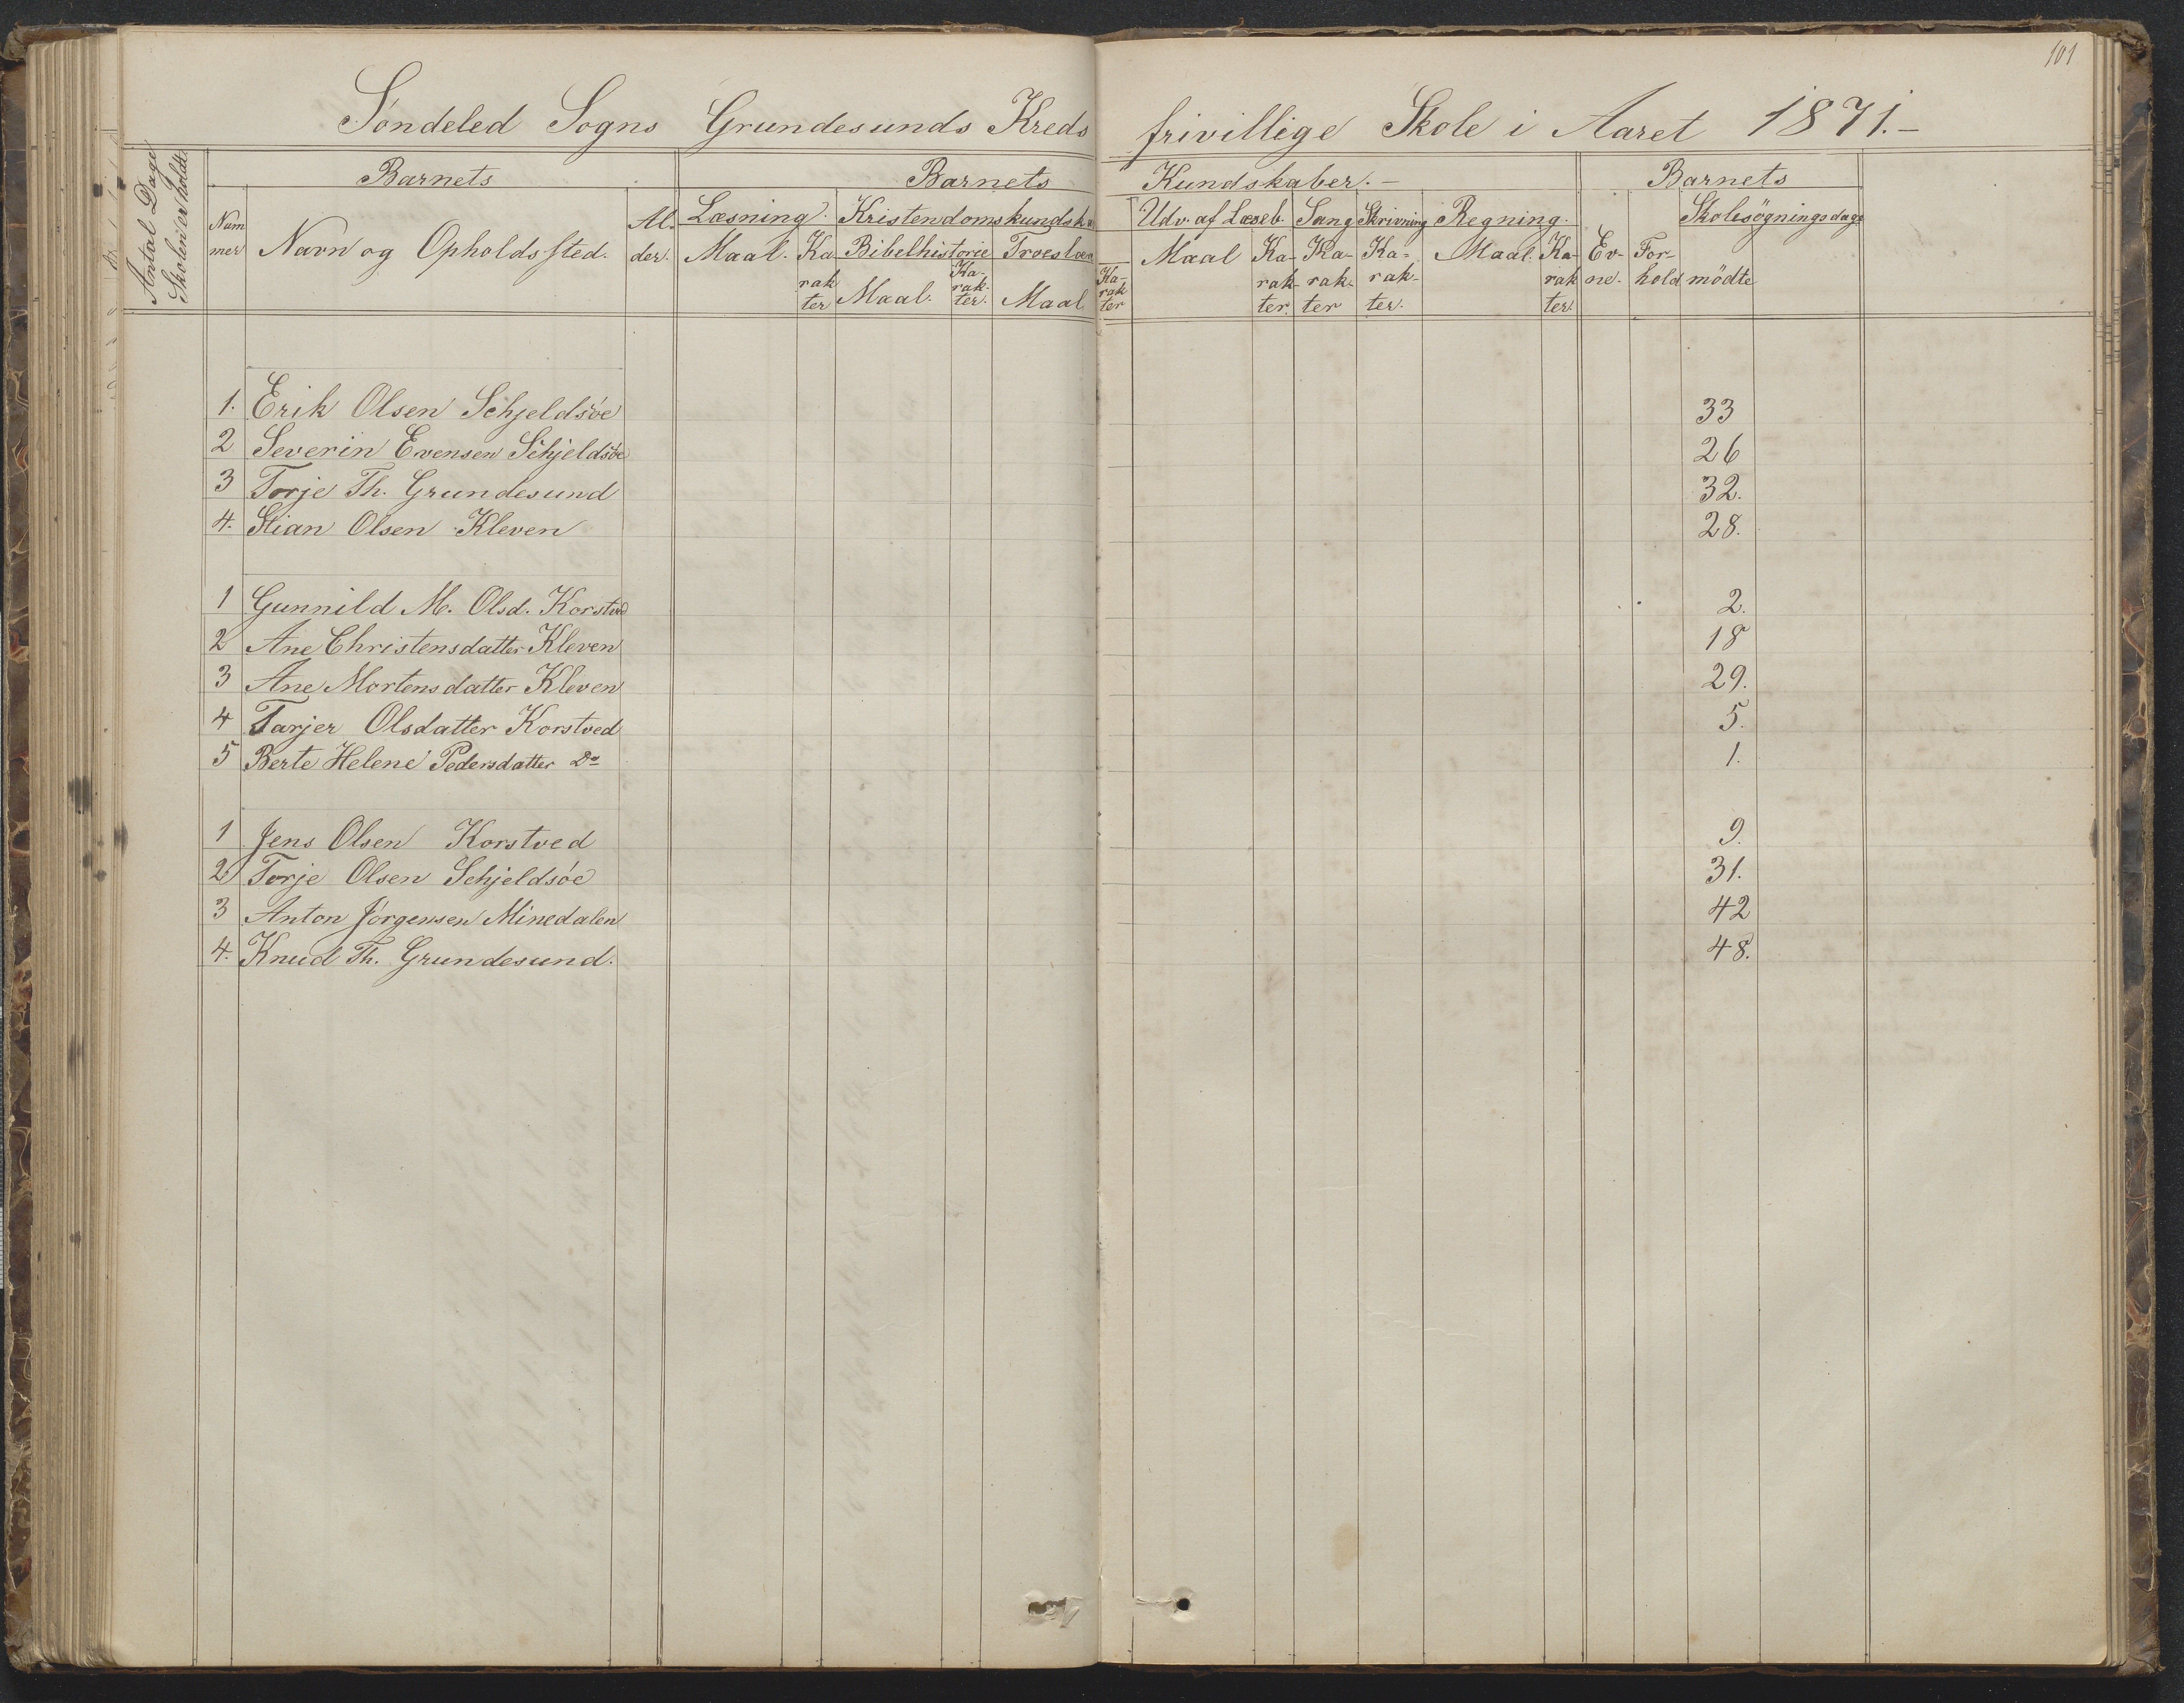 101
Söndeled Sogns Grundesunds Kreds frivillige Skole i Aaret 1871.-
Antal Dage
Skolen er holdt
Barnets
Barnets Kundskaber.-
Barnets
Num
mer
Navn og Opholdssted.
Al.
der.
Læsning.
Maal.
Ka
rak
ter
Kristendomskundska
Bibelhistorie
Maal.
Ka-
rak-
ter.
Troeslær
Maal
Ka-
rak
ter
Udv. af Læseb.
Maal
Ka-
rak-
ter.
Sang
Ka-
rak-
ter
Skrivning
Ka-
rak-
ter.
Regning.
Maal.
Ka-
rak
ter.
Ev-
ne.
For-
hold
Skolesögningsdage
mödte
1. Erik Olsen Schjeldsöe 33
2 Severin Evensen Schjeldsöe 26
3 Torje Th. Grundesund 32.
4. Stian Olsen Kleven 28.
1 Gunnild M. Olsd. Korstved 2.
2 Ane Christensdatter Kleven 18
3 Ane Mortensdatter Kleven 29.
4 Tarjer Olsdatter Korstved 5.
5 Berte Helene Pedersdatter Do 1.
1 Jens Olsen Korstved 9.
2 Torje Olsen Schjeldsöe 31.
3 Anton Jörgensen Minedalen 42
4. Knud Th. Grundesund. 48.